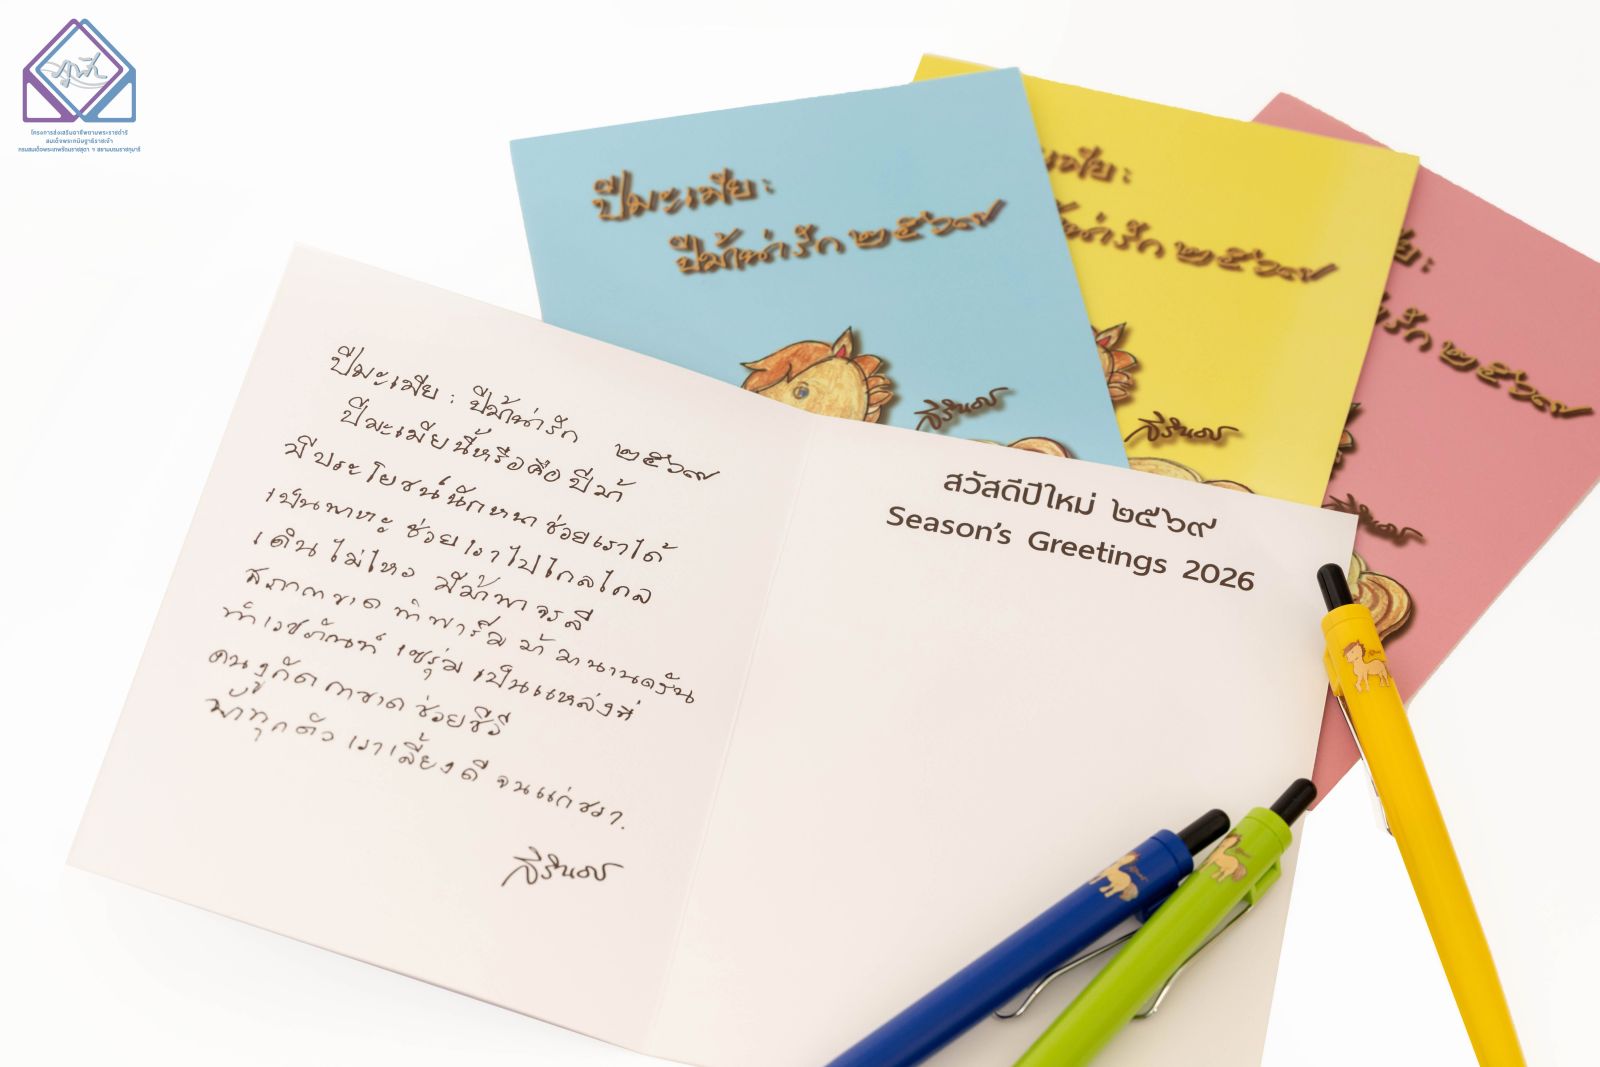 โครงการส่งเสริมอาชีพตามพระราชดำริ
สมเด็จพระกนิษฐาธิราชเจ้า
กรมสมเด็จพระเทพรัตนราชสุดา ฯ สยามบรมราชกุมารี
ปีมะเมีย :
ปีม้าน่ารัก ๒๕๖๙
สิรินธร
มะเมีย :
ม้าน่ารัก ๒๕๖๙
สิรินธร
เมีย :
น่ารัก ๒๕๖๙
สิรินธร
ปีมะเมีย : ปีม้าน่ารัก ๒๕๖๙
ปีมะเมียนี้หรือคือปีม้า
มีประโยชน์นักหนาช่วยเราได้
เป็นพาหะ ช่วยเราไปไกลไกล
เดินไม่ไหว มีม้าพาจรลี
สภากาชาด ทำฟาร์มม้ามานานครัน
ทำเวชภัณฑ์ เซรุ่ม เป็นแหล่งที่
คนงูกัด กาชาดช่วยชีวี
ม้าทุกตัว เราเลี้ยงดี จนแก่ชรา.
สิรินธร
สวัสดีปีใหม่ ๒๕๖๙
Season's Greetings 2026